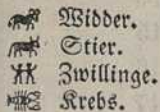 Widder.
Stier.
Zwillinge.
Krebs.